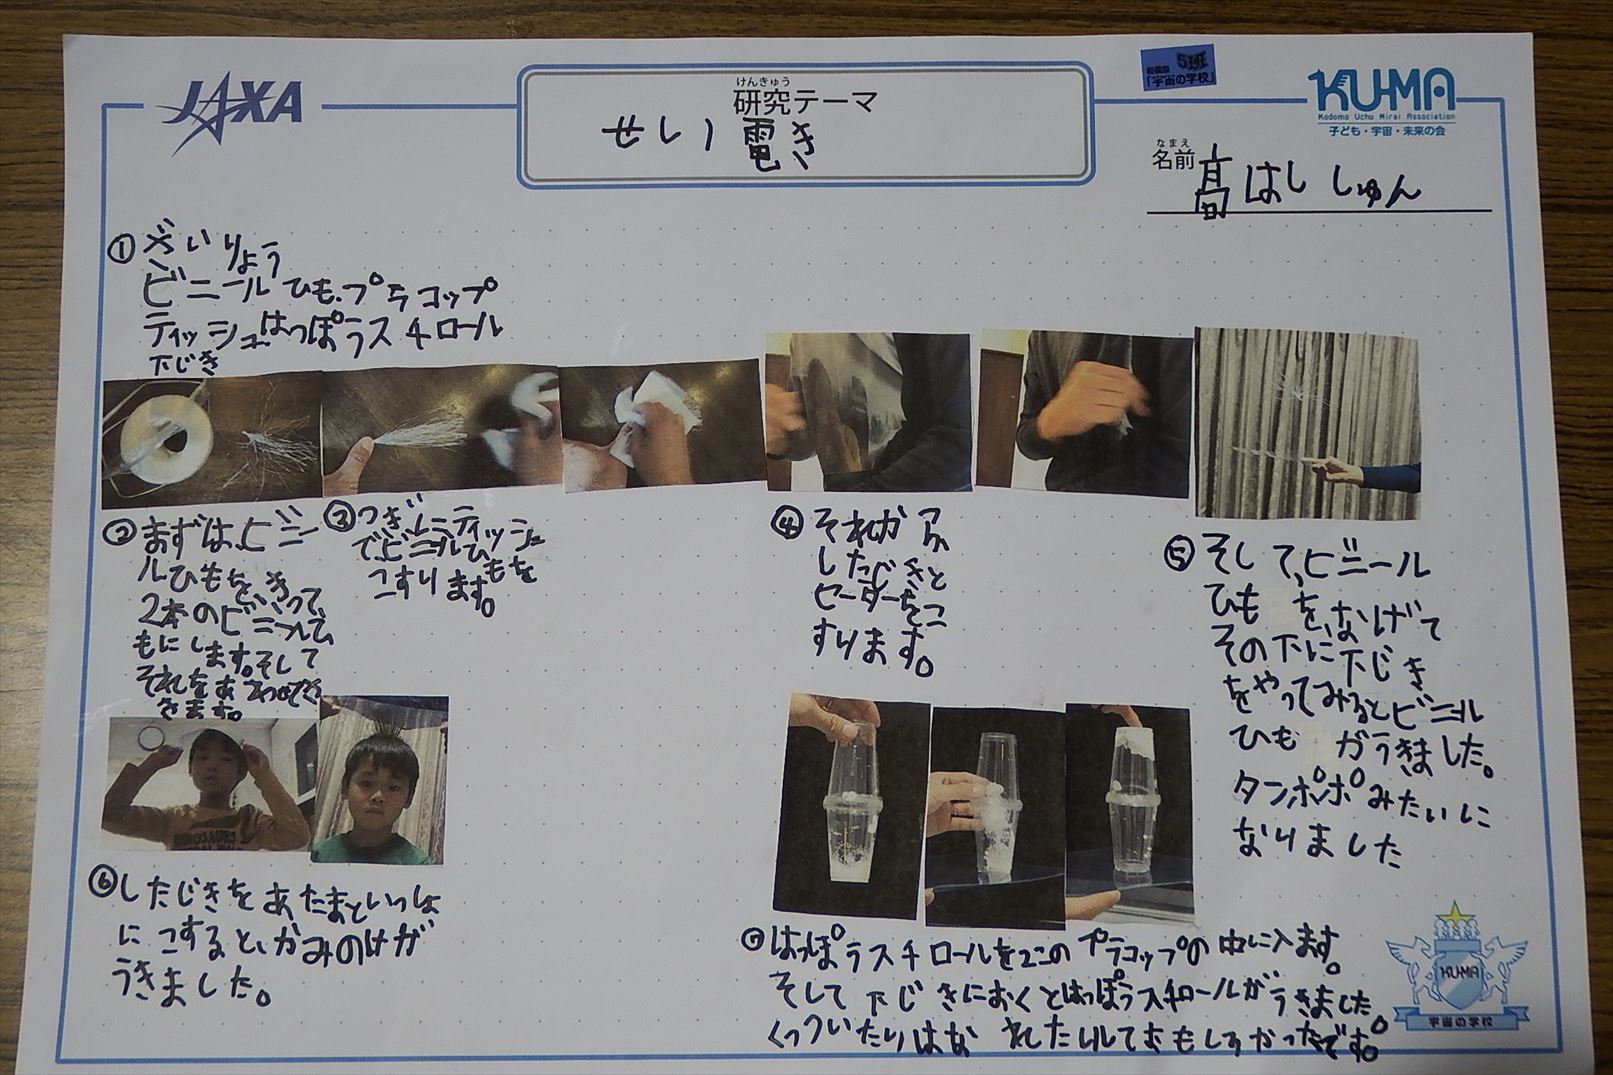 JAXA
けんきゅう
研究テーマ
せいい電き
5班
「宇宙の学校」
KU-MA
Kodomo Uchu Mirai Association
子ども・宇宙・未来の会
なまえ
名前
高はし しゅん
① ざいりょう
ビニールひも・プラコップ
ティッシュはっぽうスチロール
下じき
② まずは、ビニー
ルひもを、きって
2本のビニールひ
もにします。そして
それを
きます。
③ つぎにティッシュ
でビニールひもを
こすります。
④ それから
したじきと
セーターをこ
すります。
⑤ そして、ビニール
ひもを、なげて
その下に下じき
をやってみるとビニール
ひもがうきました。
タンポポみたいに
なりました
⑥ したじきをあたまといっしょ
にこすると、かみのけが
うきました。
⑦ はっぽうスチロールを2このプラコップの中に入ます。
そして下じきにおくとはっぽうスチロールがうきました。
くっついたりはなれたりしておもしろかったです。
KU-MA
宇宙の学校